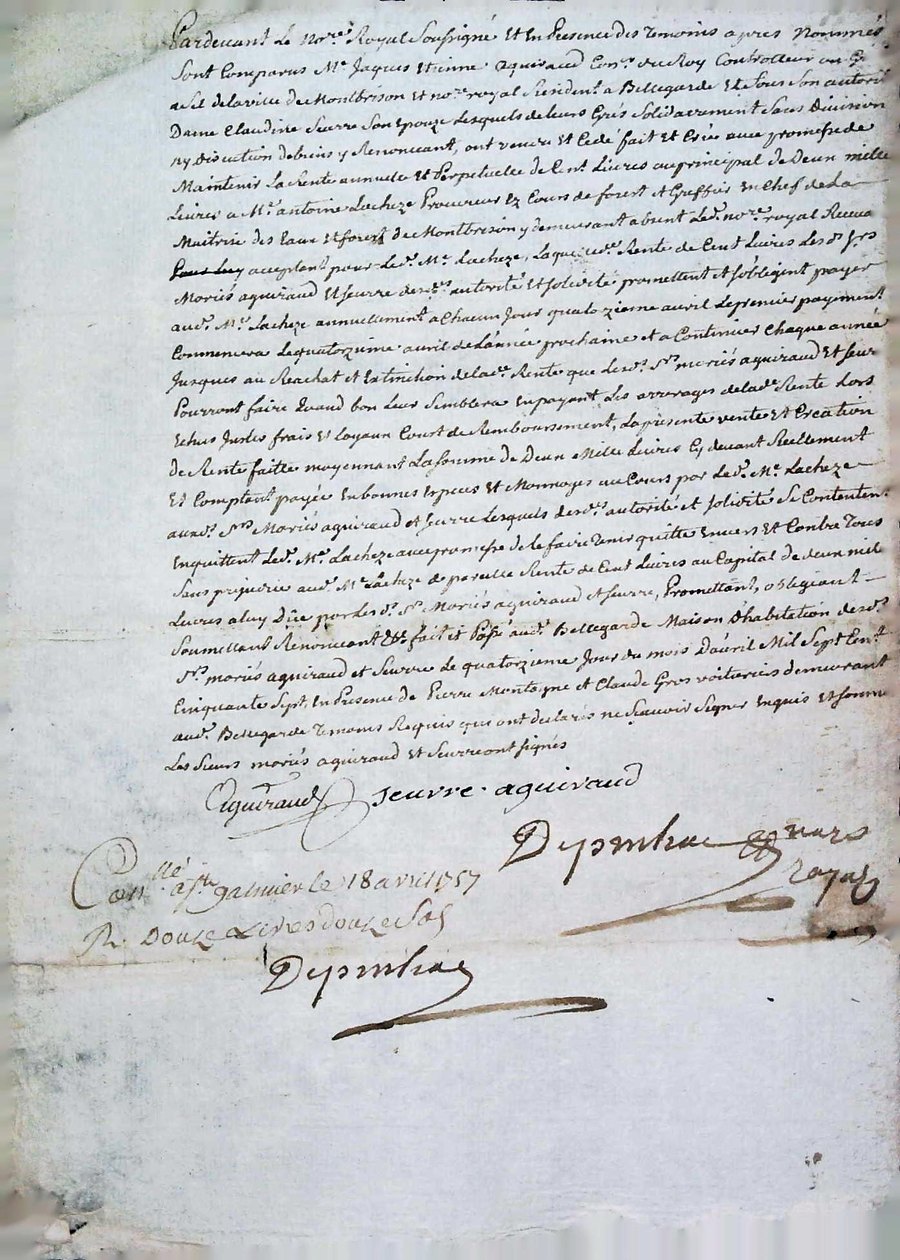 Pardevant Le Nore. Royal Soussigné Et En Presence des Temoins apres Nommés
Sont Comparus Me. Jaques Etienne aguiraud Conr. du Roy Controlleur au Gr
a Sel de la ville de Montbrison Et nore. royal Resident a Bellegarde Et de Sous Son autorité
Dame Claudine Seurre Son Epouze Lesquels de leurs Grés Solidairement Sans Division
ny discution de biens y Renoncant, ont vendu Et Cedé fait Et Créé avec promesse de
Maintenir La Rente annuelle Et Perpetuelle de Cent Livres au principal de Deux mille
Livres a Me. antoine Lacheze Procureur Ez Cours de forest Et Greffier En Chef de La
Maitrise des Eaux Et forest de Montbrison y demeurant absent Led. nore. royal Receva
Pour Luy acceptant pour Led. Me. Lacheze, Laquelle d. Rente de Cent Livres Lesd. Srs
Mariés aguiraud Et Seurre desd. autorité Et Solidité promettent Et Soblègent payer
aud. Me. Lacheze annuellement a Chacun Jour quatorzieme avril Le premier payement
Commencera Le quatorzieme avril de L'année prochaine et a Continuer Chaque année
Jusques au Reachat Et Extinction de lade. Rente que Lesd. Srs. mariés aguiraud Et Seur
Pourront faire Quand bon Leur Semblera En payant Les arrerages de lade Rente Lors
Echus Justes frais Et Loyaux Coust de Remboursement, La presente vente Et Création
de Rente faitte moyennant La Somme de Deux Mille Livres Cy devant Reellement
Et Comptant payée En bonnes Especes Et Monnoyes au Cours par Led. Me. Lacheze
auxd. Srs Mariés aguiraud et Seurre Lesquels desd. autorité et Solidité Se Contentent
En quittent Led. Me. Lacheze avec promesse de le faire Tenir quitte Envers Et Contre Tous
Sans prejudice aud. Me. Lacheze de pareille Rente de Cent Livres au Capital de deux mil
Livres a luy Düe par Lesd. Srs. Mariés aguiraud et Seurre, Promettant, oblegeant
Soumettant Renoncent fait et Passé aud. Bellegarde Maison D'habitation desd.
Srs. mariés aguiraud et Seurre Le quatorzieme Jour du mois D'avril Mil Sept Cent
Cinquante Sept, En Presence de Pierre Montagne et Claude Gros voituriers demeurant
aud. Bellegarde Temoins Requis qui ont declarés ne Scavoir Signer Enquis Et Sommé
Les Sieurs mariés aguiraud Et Seurre ont signés
Aguiraud Seurre aguiraud
Depinhac nore
Royal
Conllé a St galmier le 18 avril 1757
R. Douze Livres douze Sols
Depinhac